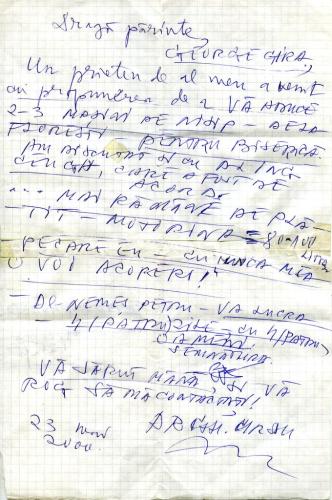 Dragă părinte,
GEORGE GIRA,
Un prieten de al meu a venit
cu propunerea de a VĂ ADUCE
2-3 MAȘINI DE NISIP - DELA
FLOREȘTI - PENTRU BISERICĂ.
AM DISCUTAT ȘI CU D-L ING
CENGA, CARE A FOST DE
ACORD.
... MAI RĂMÂNE DE PLĂ-
TIT - MOTORINA = 80-100
LITRI,
PE CARE EU - CU MUNCA MEA
O VOI ACOPERI!
- DL NEMEȘ PETRU - VA LUCRA
4 (PATRU) ZILE - CU 4 (PATRU)
OAMENI.
SEMNĂTURA.
VĂ SĂRUT MÂNA, ȘI VĂ
ROG SĂ MĂ CONTACTAȚI!
23
2000.